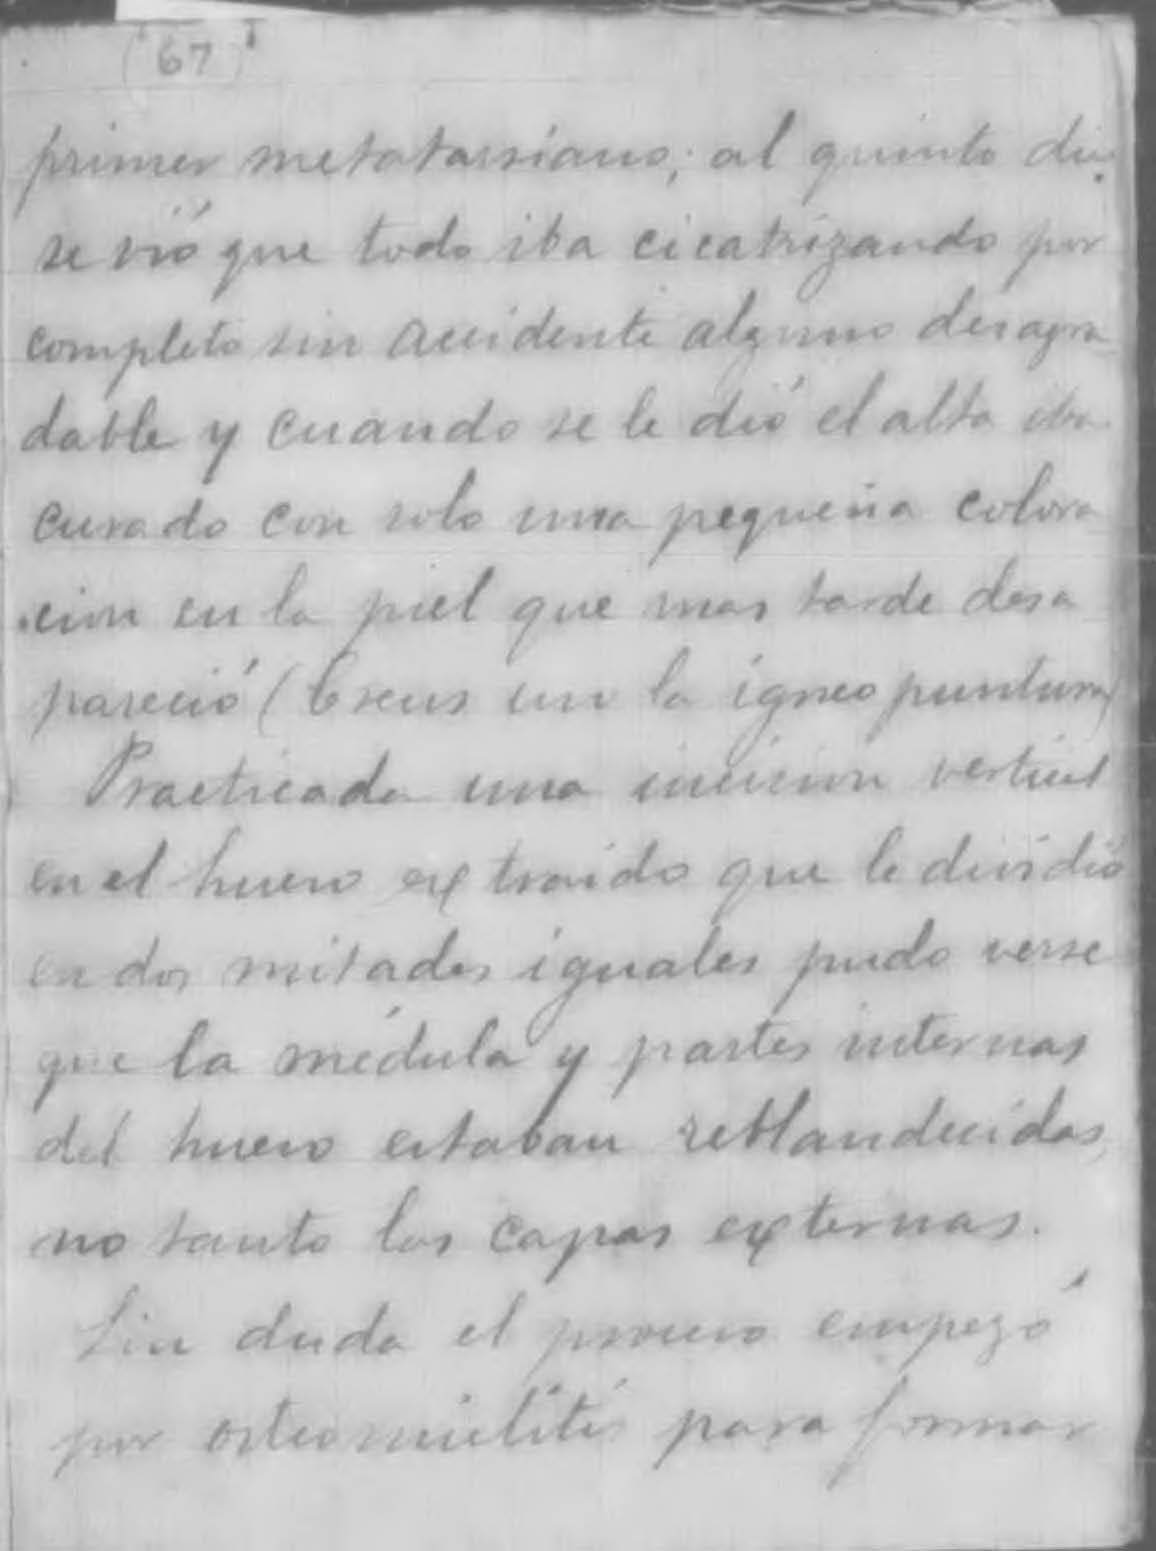 (67)
primer metatarsiano; al quinto dia
se vió que todo iba cicatrizando por
completo sin accidente alguno desagra
dable y cuando se le dió el alta iba
curado con solo una pequeña colora
cion en la piel que mas tarde desa
pareció (Creus con la igneo puntura)
Practicada una incision vertical
en el hueso extraido que le dividió
en dos mitades iguales pudo verse
que la médula y partes internas
del hueso estaban reblandecidas,
no tanto las capas externas.
Sin duda el proceso empezó
por osteomielitis para formar